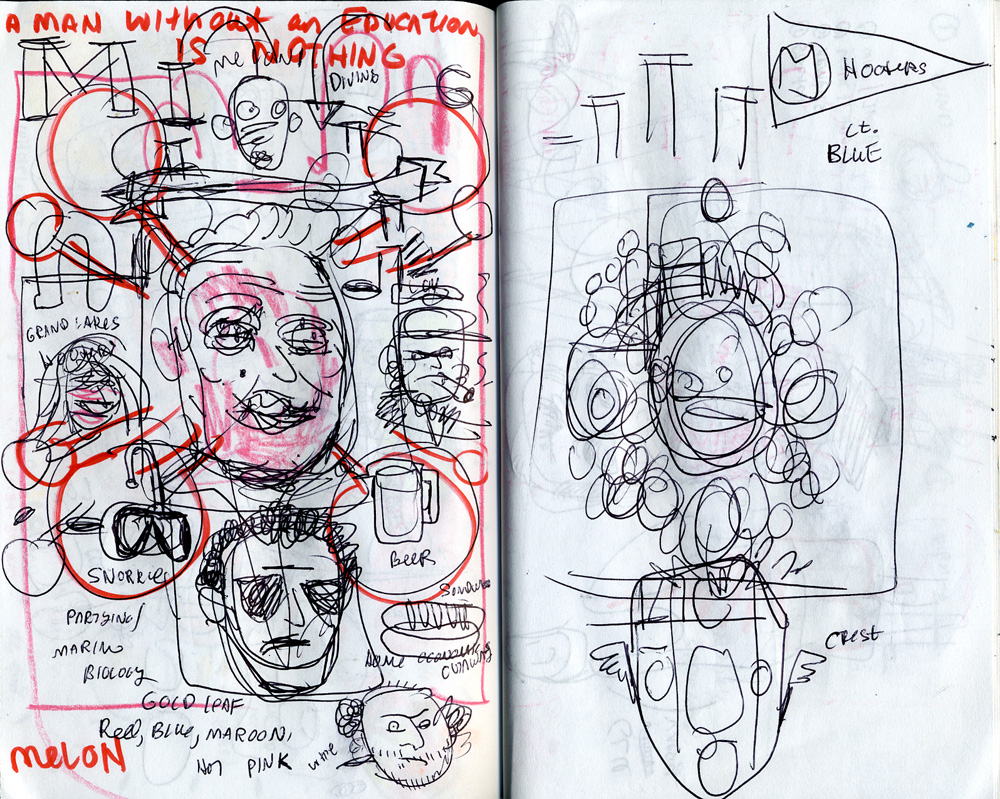 A MAN WITHOUT AN EDUCATION
IS NOTHING
MELON
DIVING
GRAND LAKES
SNORKEL
BEER
PARTYING/
MARINE
BIOLOGY
HOME ECONOMICS
GOLD LEAF
Red, BLUE, MAROON,
NOT PINK white
MELON
M HOOVERS
Lt.
BLUE
CREST